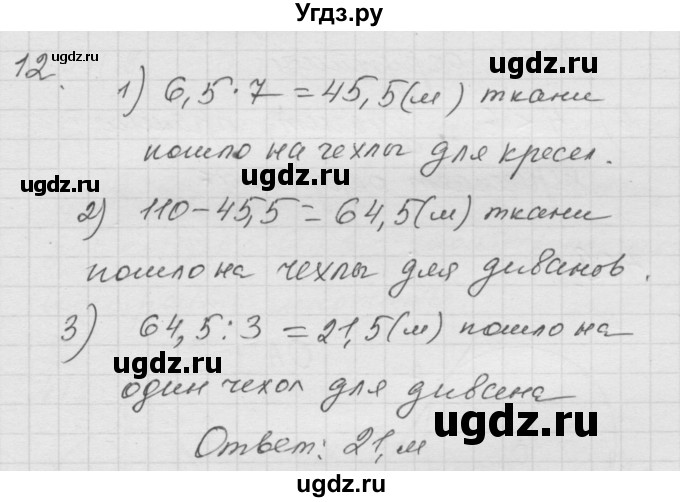 Угдз.ру
12.
1) 6,5·7=45,5(м) ткани
пошло на чехлы для кресел.
2) 110-45,5=64,5(м) ткани
пошло на чехлы для диванов.
3) 64,5:3=21,5(м) пошло на
один чехол для дивана
Ответ: 21,м
ugdz.ru
ugdz.ru
ugdz.ru
ugdz.ru
ugdz.ru
ugdz.ru
ugdz.ru
ugdz.ru
ugdz.ru